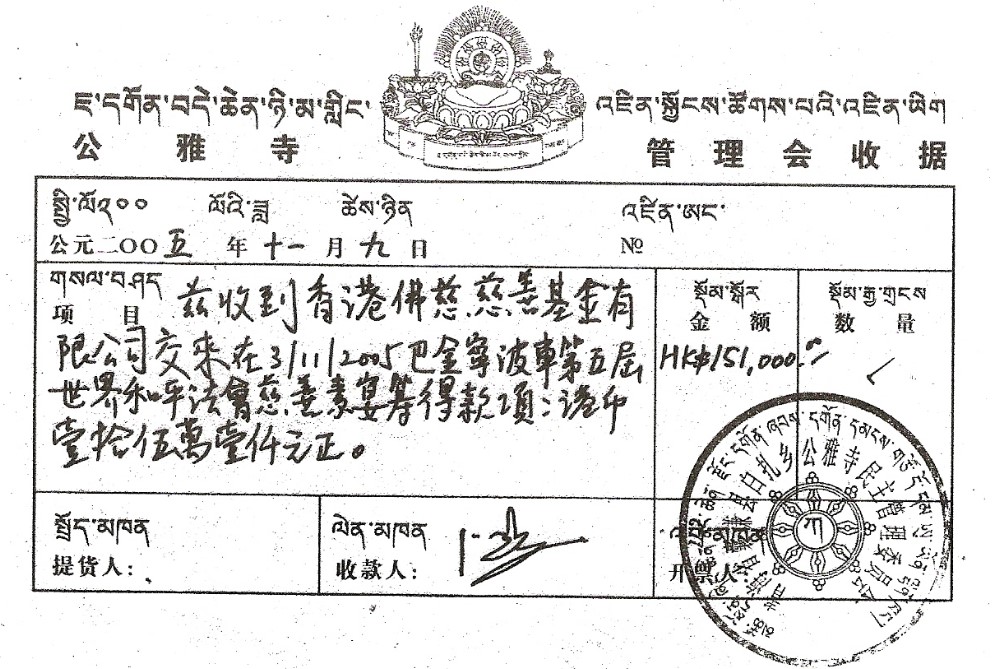 ཇ་དགོན་བདེ་ཆེན་ཉི་མ་གླིང་ འཛིན་སྐྱོང་ཚོགས་པའི་འཛིན་ཡིག
公雅寺 管理会收据
སྤྱི་ལོ༢༠༠ ལོའི་ཟླ ཚེས་ཉིན འཛིན་ཨང་
公元二〇〇五年十一月九日 №
གསལ་བཤད སྡོམ་སྐོར སྡོམ་རྒྱ་གྲངས
项目 金额 数量
兹收到香港佛慈慈善基金有
限公司交来在3/11/2005巴金寧波車第五届 HK$151,000.
世界和平法會慈善素宴籌得款項:港币
壹拾伍萬壹仟元正。
སྤྲོད་མཁན ལེན་མཁན
提货人: 收款人: 开票人:
白扎乡公雅寺民主管理委员会